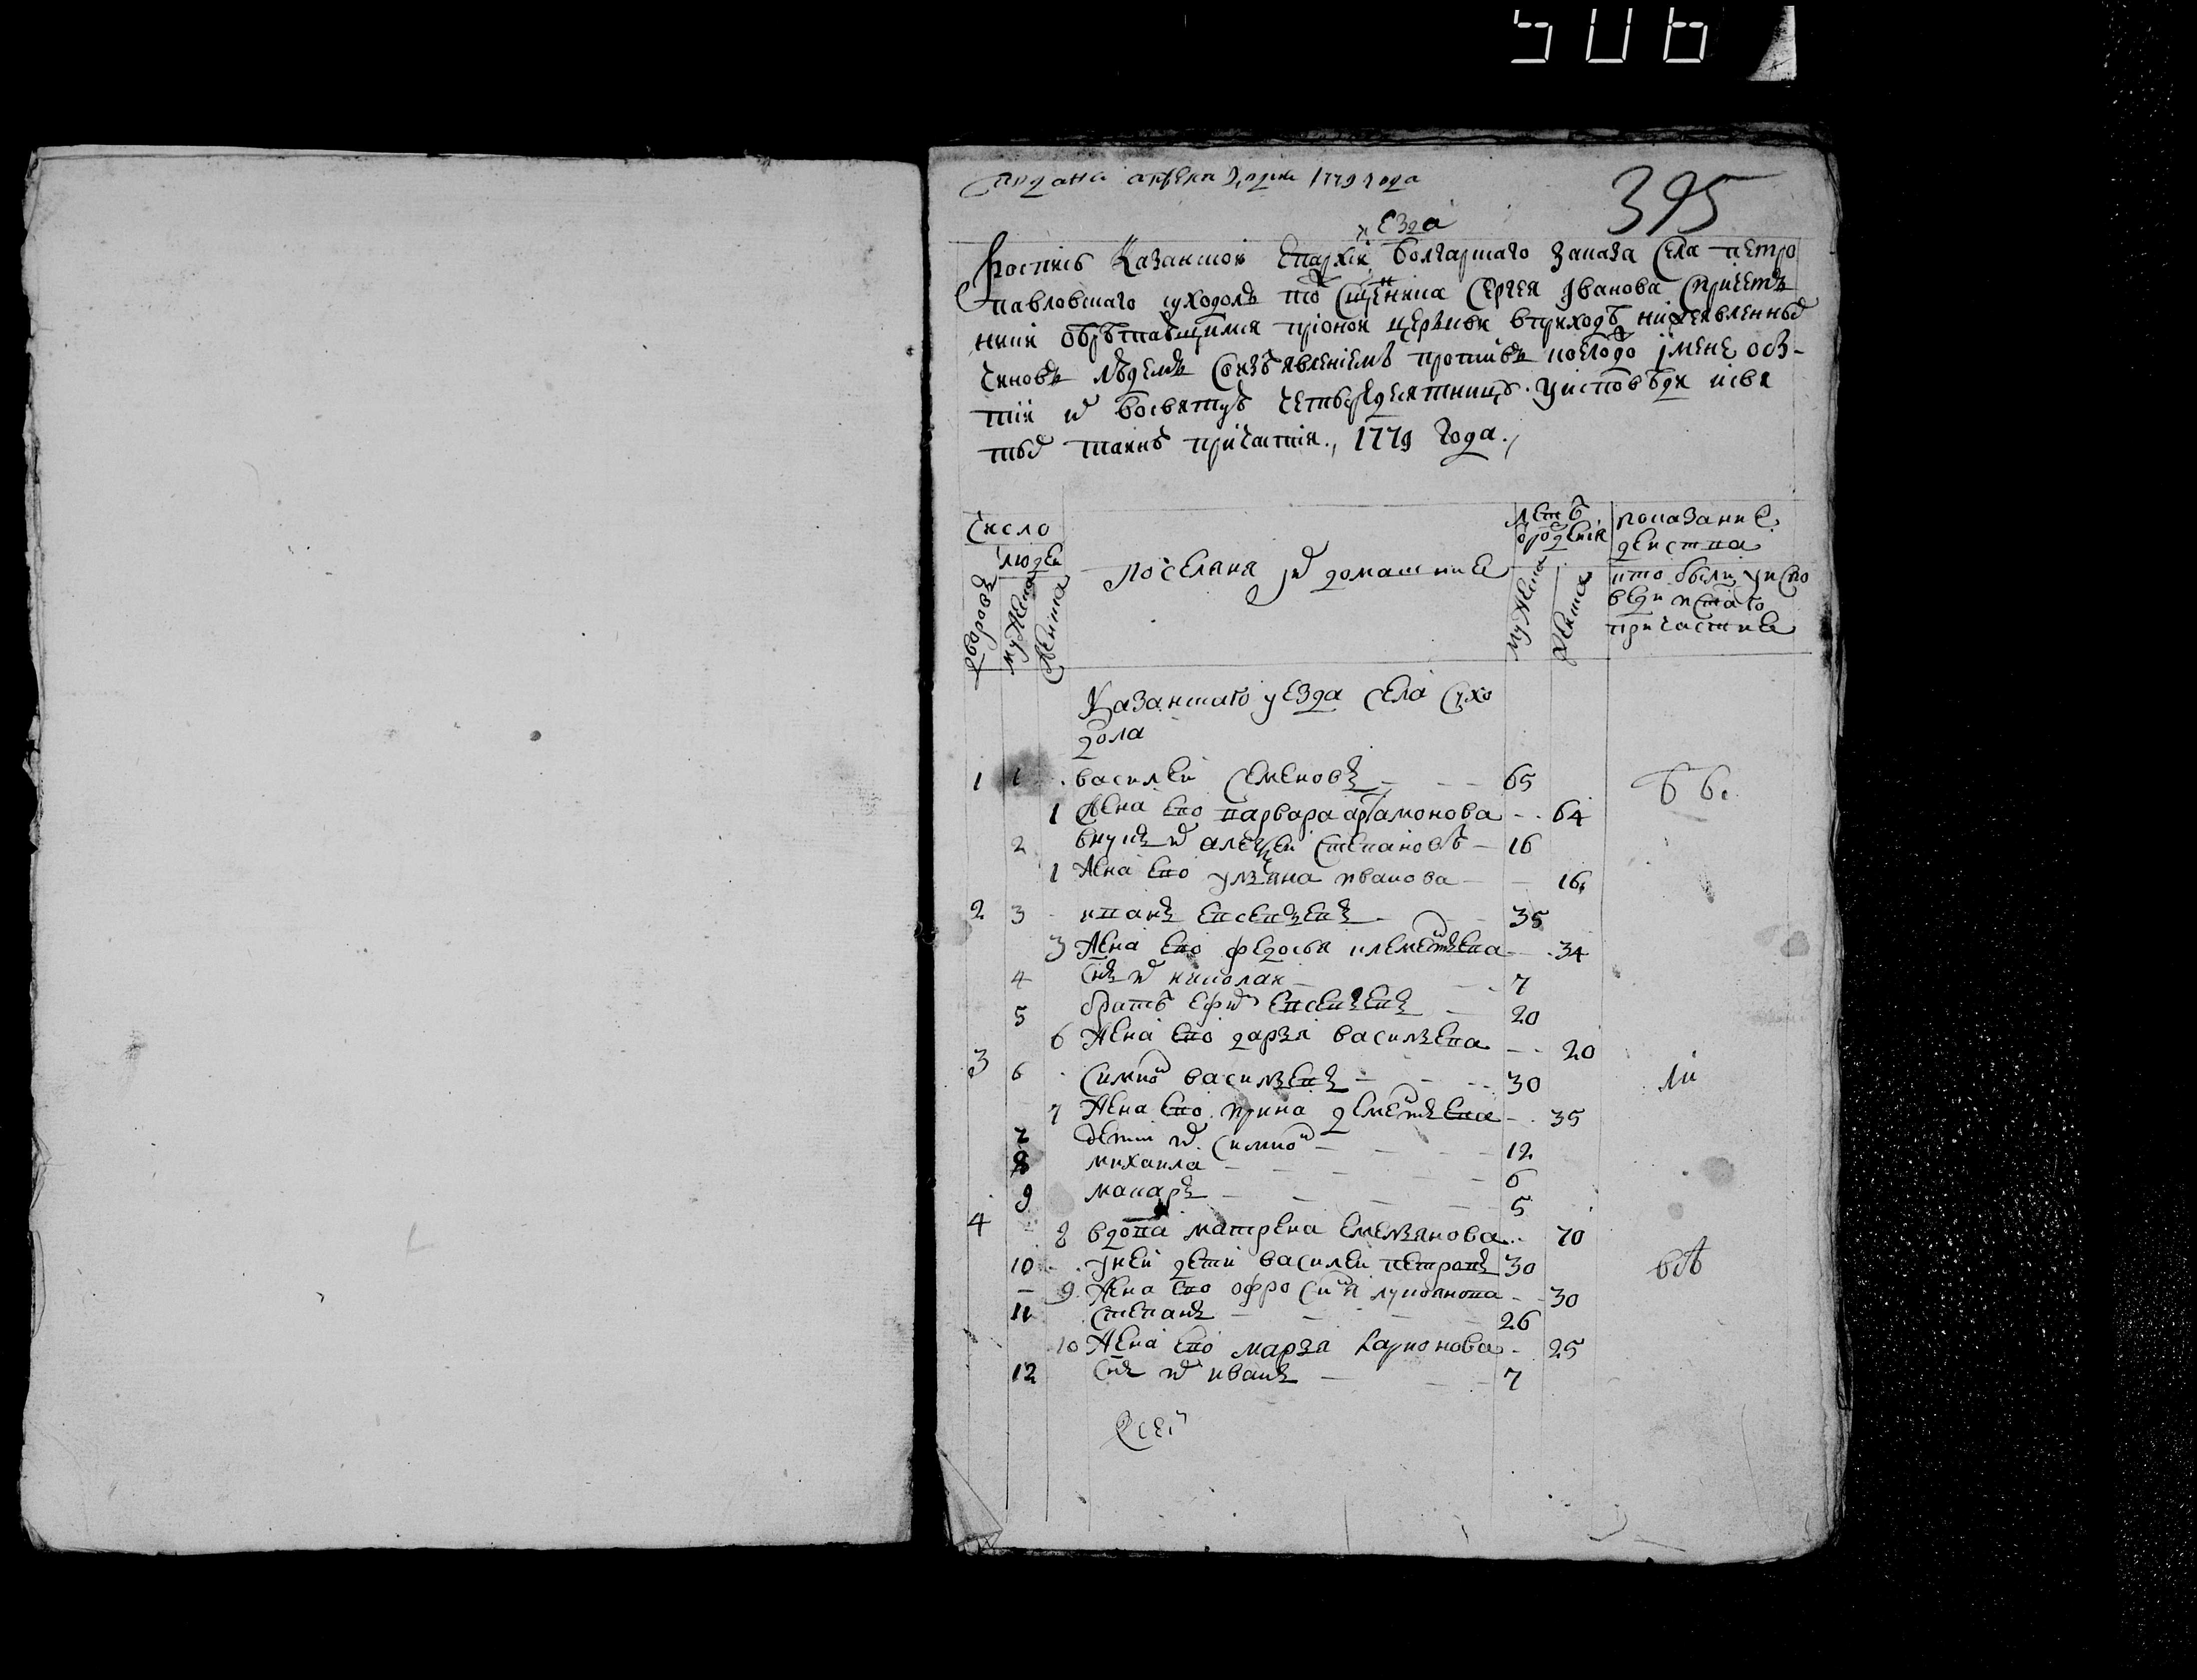 506
395
подана 1779 года
уезда
Роспись Казанской Епархїи Болгарскаго заказа Села Петро
павловскаго суходолъ тож Сщенника Сергея Иванова Спричетъ
ники обрѣтающимся при оной церкви вприходѣ нижеявленныхъ
чиновъ людемъ Соизъявленїемъ противъ коегождо имене о бы
тїи их восвятую четыредесятницу у исповѣди исвя
тыхъ таинъ причастїя., 1779 Года.,
Число
людей
дворовъ
мужеска
женска
поселяня и их домашние
летъ
от рождения
мужеска
женска
показание
действа
кто были у испо
веди и стаго
причастие
Казанскаго уезда Села Сухо
дола
1 1 василеи Семеновъ 65
1 жена ево варвара артамонова 64
2 внукъ их алеѯеи Степановъ 16
1 жена ево ульяна иванова 16
2 3 иванъ евсевьевъ 35
3 жена ево федосья клементьева 34
4 Снъ их николаи 7
5 братъ ефим евсевьевъ 20
6 жена ево дарья васильева 20
3 6 Симион васильевъ 30
7 жена ево ирина дементьева 35
7 дети их Симион 12
8 михаила 6
9 макаръ 5
4 8 вдова матрена емельянова 70
10 у неи дети василеи петровъ 30
9 жена ево офросинья лукоянова 30
11 Степанъ 26
10 жена ево марья Карионова 25
12 Снъ их иванъ 7